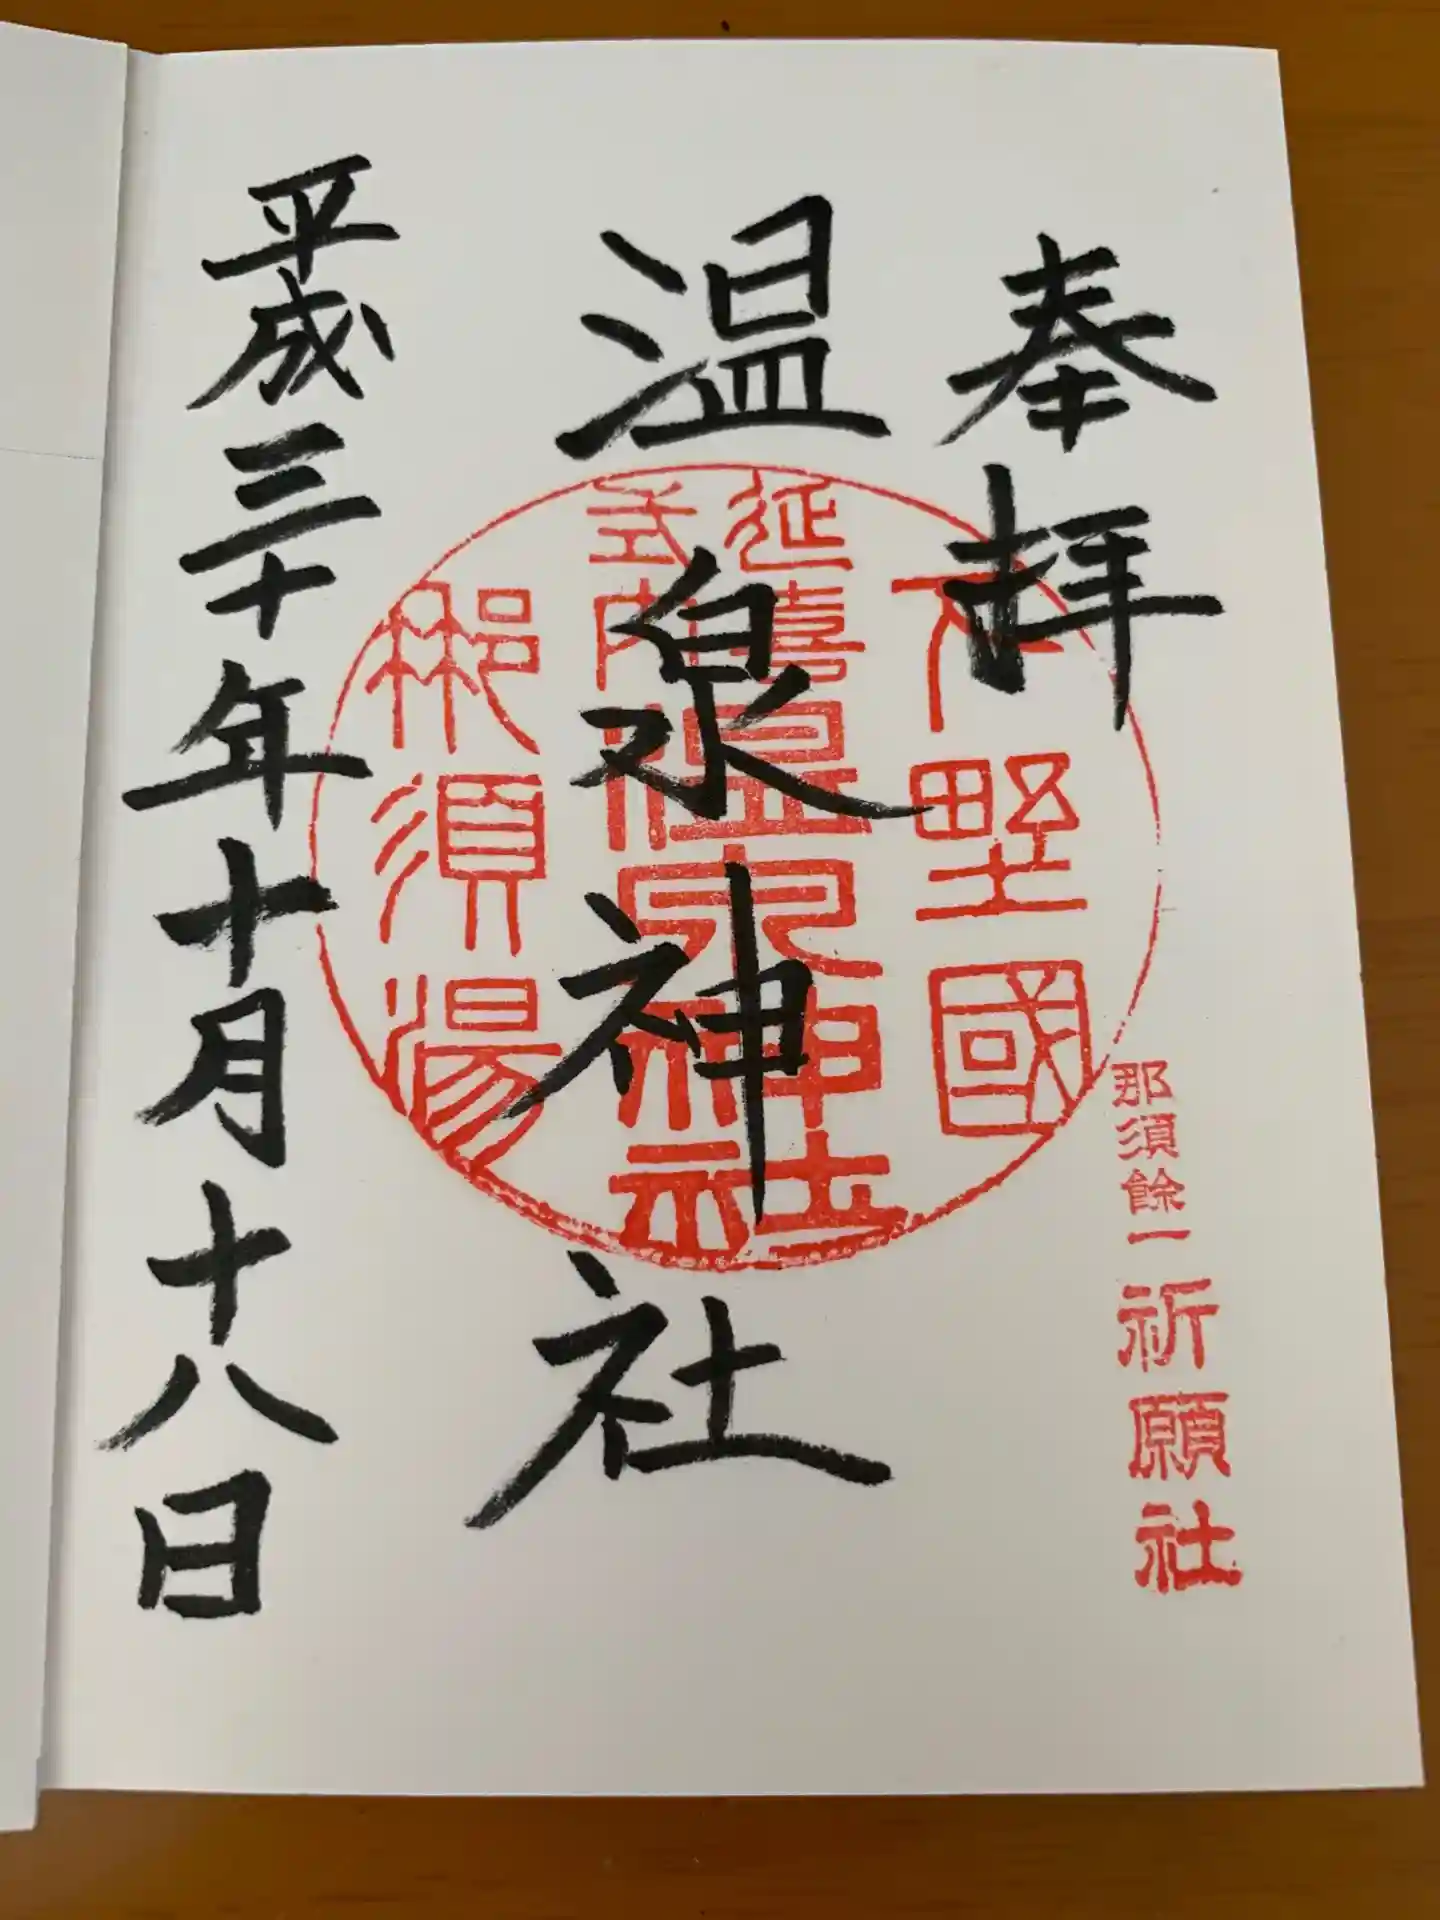 奉拝
那須餘一祈願社
温泉神社
下野國
延喜
式内
温泉神社
那須湯
平成三十年十月十八日